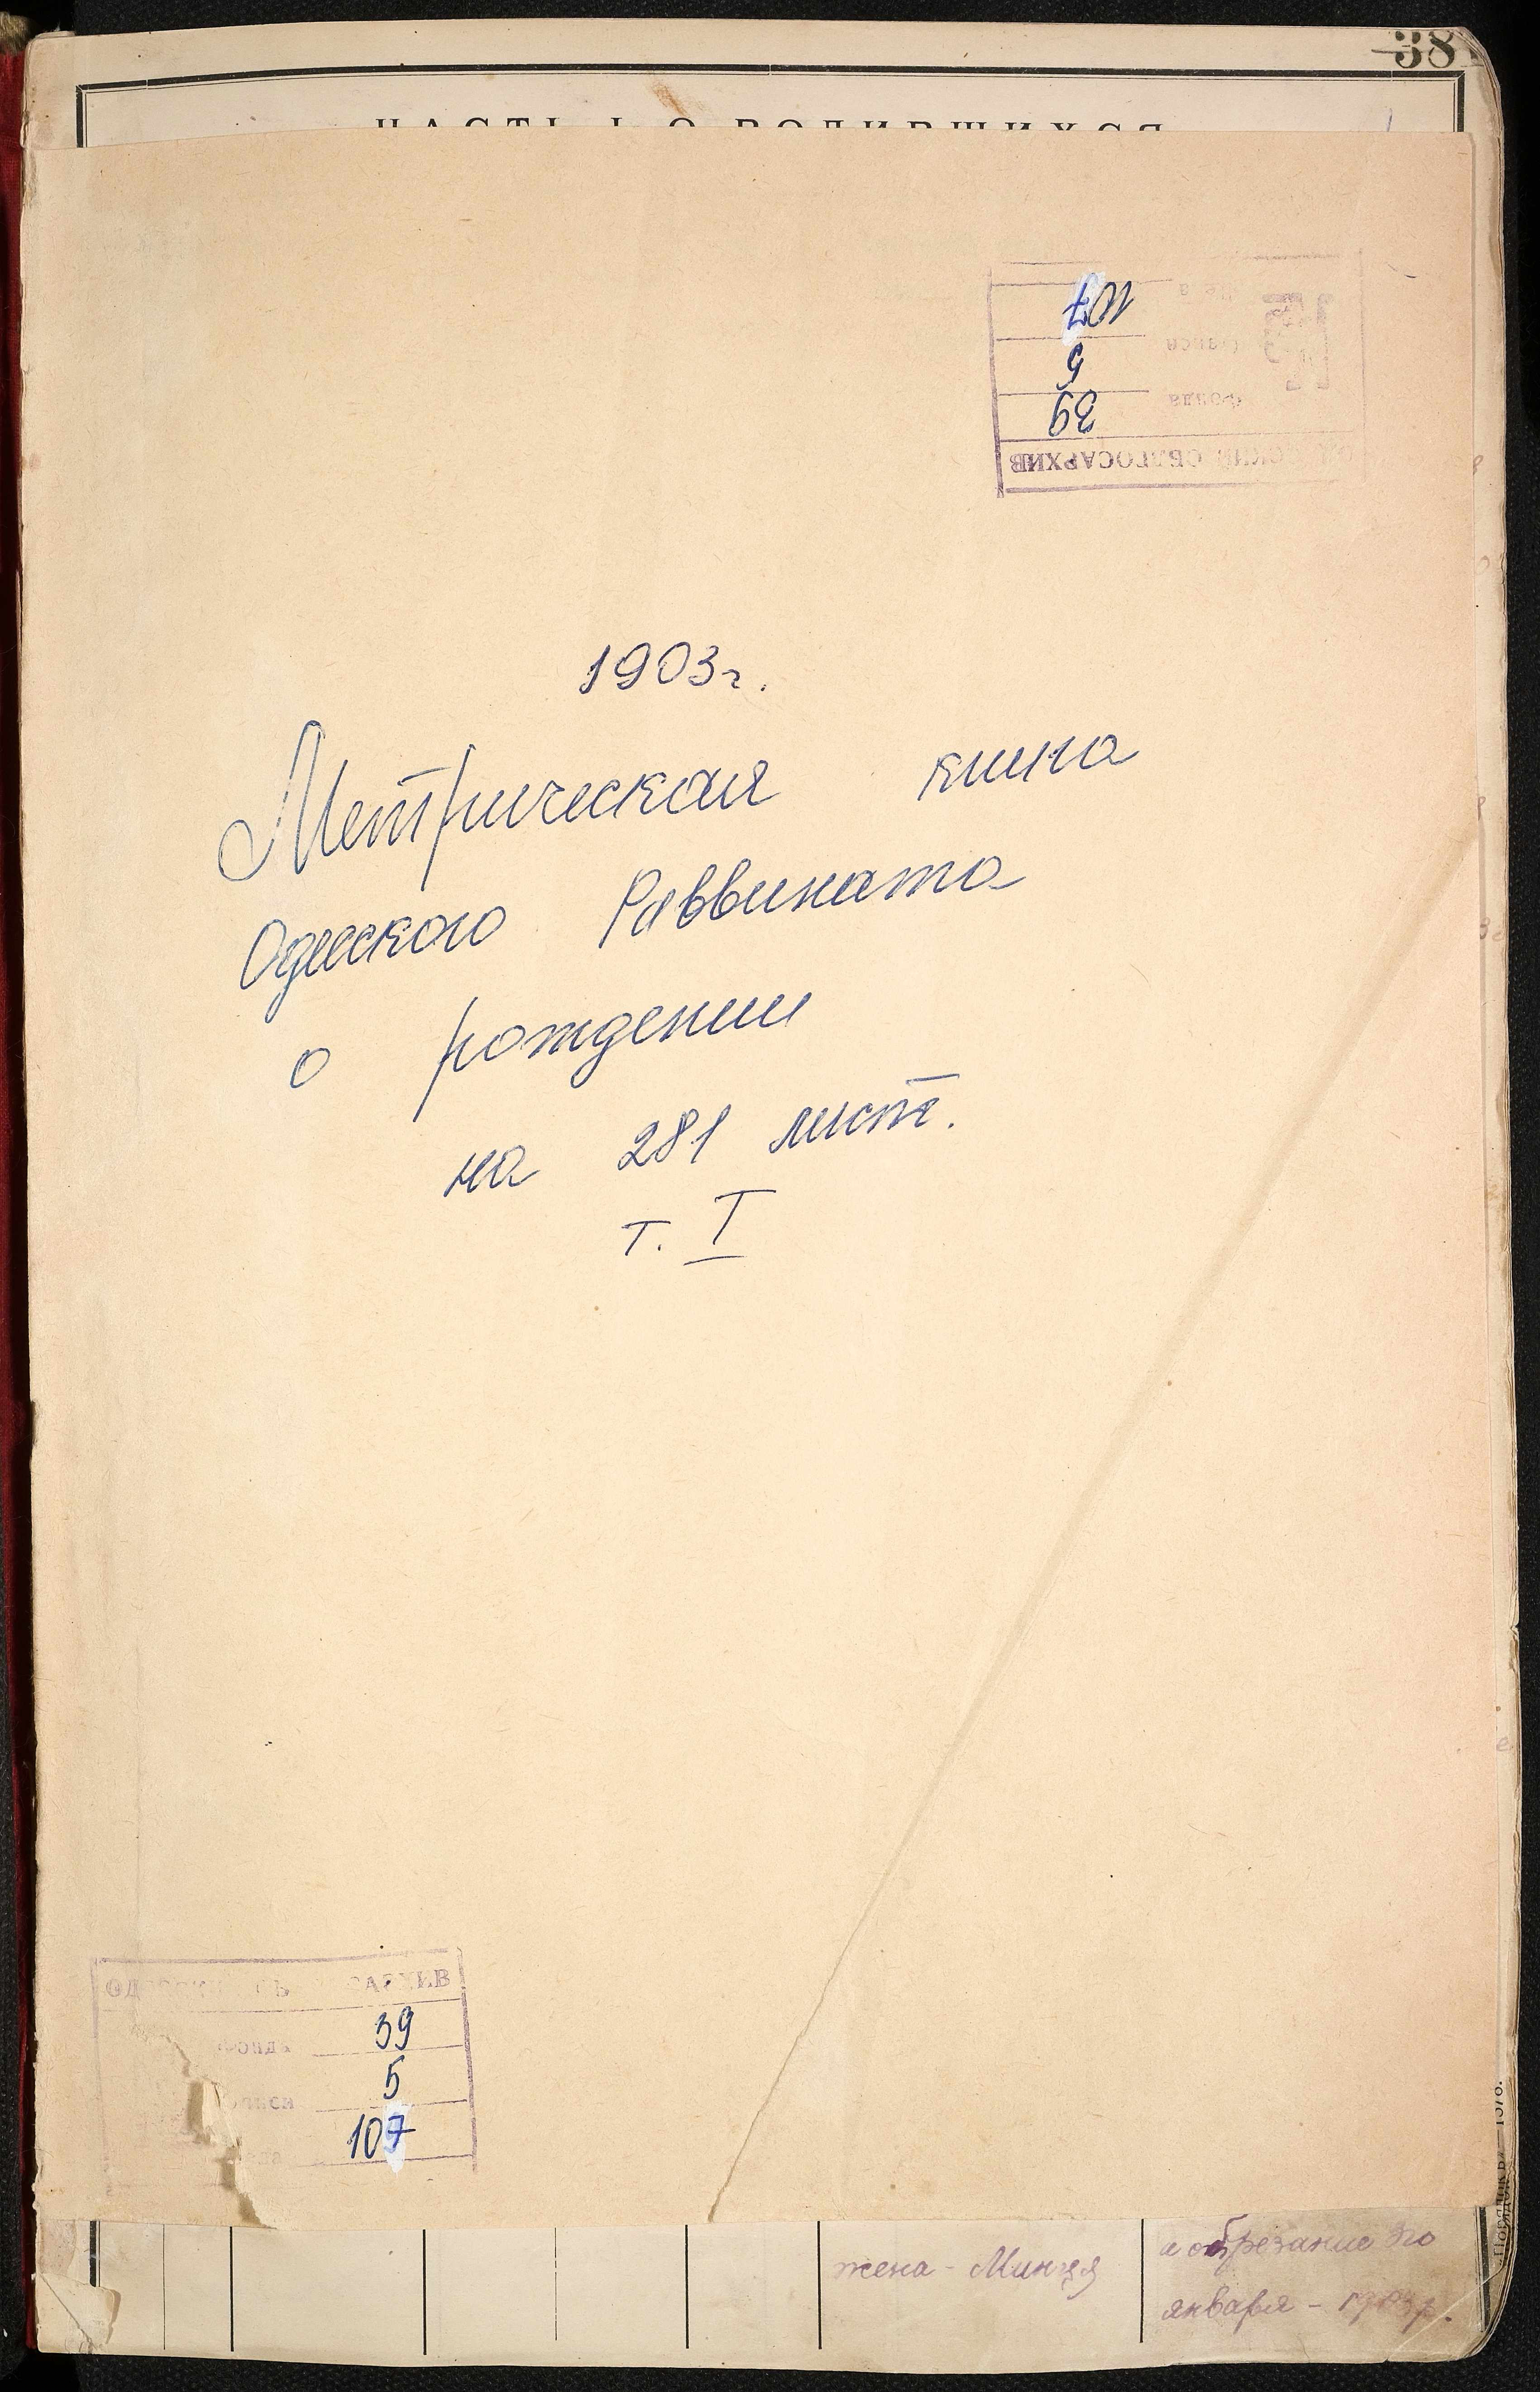 38
ЧАСТЬ I. О РОДИВШИХСЯ
107
5
Фонда 39
ОДЕССКИЙ ОБЛГОСАРХИВ
1903г.
Метрическая книга
Одесского Раввината
о рождении
на 281 лист.
т. I
ОДЕССКИЙ ОБЛГОСАРХИВ
Фонда 39
Описи 5
107
жена - Минця
и обрезание его
января - 1903 г.